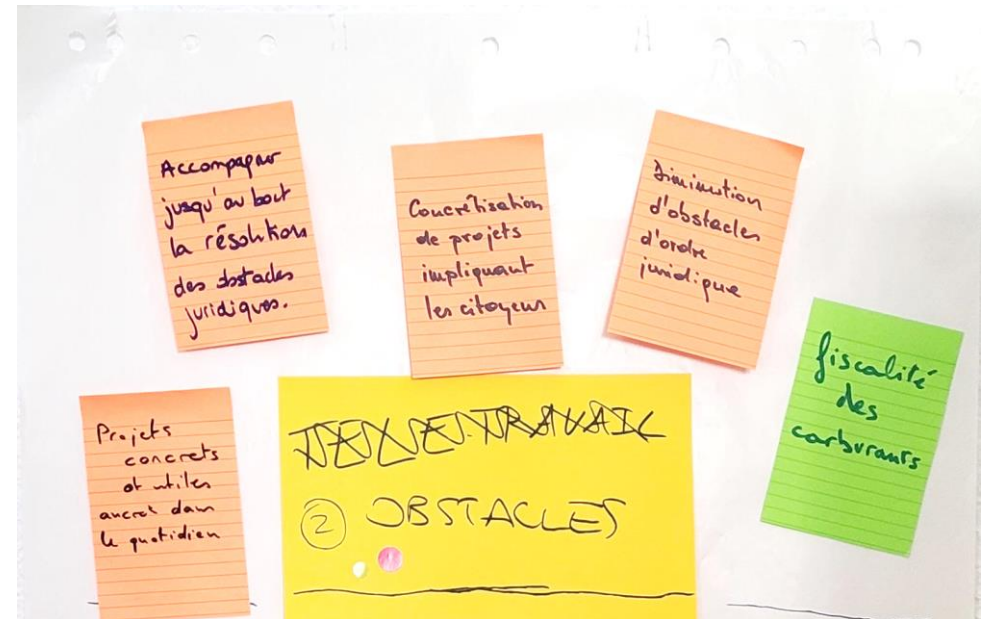 Accompagner
jusqu'au bout
la résolution
des obstacles
juridiques.
Concrétisation
de projets
impliquant
les citoyens
Diminution
d'obstacles
d'ordre
juridique
fiscalité
des
carburants
Projets
concrets
et utiles
ancrés dans
le quotidien
TRAVAIL
2 OBSTACLES